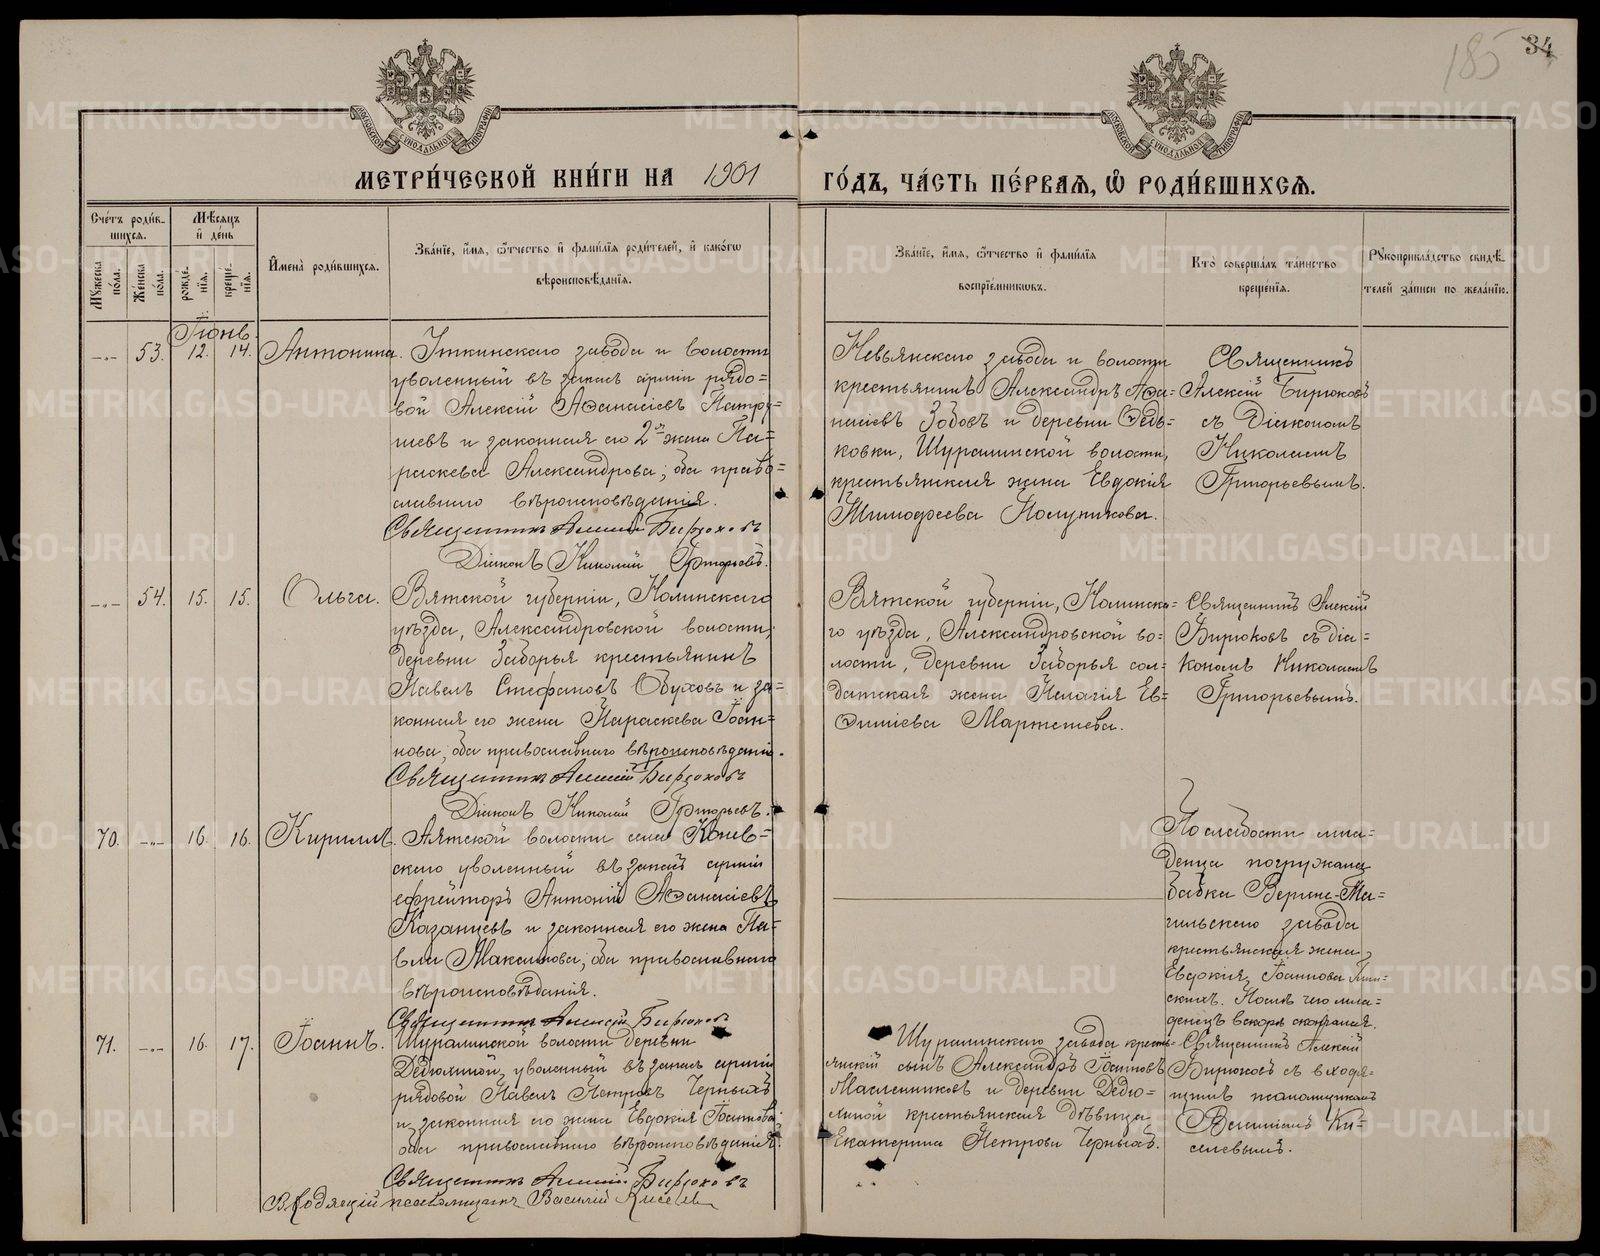 185
34
МОСКОВСКОЙ СѴНОДАЛЬНОЙ ТИПОГРАФІИ
МОСКОВСКОЙ СѴНОДАЛЬНОЙ ТИПОГРАФІИ
МЕТРИ́ЧЕСКОЙ КНИ́ГИ НА 1901
ГО́ДЪ, ЧА́СТЬ ПЕ́РВАЯ, Ѽ РОДИ́ВШИХСЯ.
Сче́тъ роди́в-
шихся.
Мѣ́сяцъ
и҆ де́нь
Мꙋ́жеска по́ла.
Же́нска по́ла.
рожде́-нїя.
креще́-нїя.
И҆мена̀ роди́вшихся.
Зва́нїе, и҆́мя, ѻ҆́тчество и҆ фами́лїя роди́телей, и҆ како́гѡ
вѣроисповѣ́данїя.
Зва́нїе, и҆́мя, ѻ҆́тчество и҆ фами́лїя
воспрїе́мникѡвъ.
Кто̀ соверша́лъ та́инство
креще́нїя.
Рꙋкоприкла́дство свидѣ́-
телей за́писи по жела́нїю.
Іюнь.
-"- 53. 12. 14. Антонина.
Уткинскаго завода и волости
уволенный въ запасъ арміи рядо=
вой Алексій Аѳанасіевъ Патру=
шевъ и законная его 2я жена Па=
раскева Александрова; оба право=
славнаго вѣроисповѣданія.
Священникъ Алексій Бирюковъ
Діаконъ Николай Григорьевъ.
Невьянскаго завода и волости
крестьянинъ Александръ Аѳа=
насіевъ Зобовъ и деревни Ѳедь=
ковки, Шуралинской волости,
крестьянская жена Евдокія
Тимоѳеева Полуникова.
Священникъ
Алексій Бирюковъ
съ Діакономъ
Николаемъ
Григорьевымъ.
-"- 54. 15. 15. Ольга.
Вятской губерніи, Нолинскаго
уѣзда, Александровской волости,
деревни Заборья крестьянинъ
Павелъ Стефановъ Обуховъ и за=
конная его жена Параскева Іоан=
нова, оба православнаго вѣроисповѣданія.
Священникъ Алексій Бирюковъ
Діаконъ Николай Григорьевъ.
Вятской губерніи, Нолинска=
го уѣзда, Александровской во=
лости, деревни Заборья сол=
датская жена Пелагія Ев=
ѳиміева
Священникъ Алексій
Бирюковъ съ діа=
кономъ Николаемъ
Григорьевымъ.
70. -"- 16. 16. Кириллъ.
Аятской волости села Конев=
скаго уволенный въ запасъ арміи
ефрейторъ Антоній Аѳанасіевъ
Казанцевъ и законная его жена Па=
вла Максимова; оба православнаго
вѣроисповѣданія.
Священникъ Алексій Бирюковъ
По слабости мла=
денца погружала
бабка Верхне-Та=
гильскаго завода
крестьянская жена
Евдокія Іоаннова
Послѣ чего мла=
денецъ вскорѣ скончался.
71. -"- 16. 17. Іоаннъ.
Шуралинской волости деревни
Дедюлиной, уволенный въ запасъ арміи
рядовой Павелъ Петровъ Черныхъ
и законная его жена Евдокія Іоаннова
оба православнаго вѣроисповѣданія.
Священникъ Алексій Бирюковъ
В.ходящій псаломщикъ Василій Киселевъ
Шуралинскаго завода кресть=
янскій сынъ Александръ Іоанновъ
Масленниковъ и деревни Дедю=
линой крестьянская дѣвица
Екатерина Петрова Черныхъ.
Священникъ Алексій
Бирюковъ съ входя=
щимъ псаломщикомъ
Василіемъ Ки=
селевымъ.
METRIKI.GASO-URAL.RU